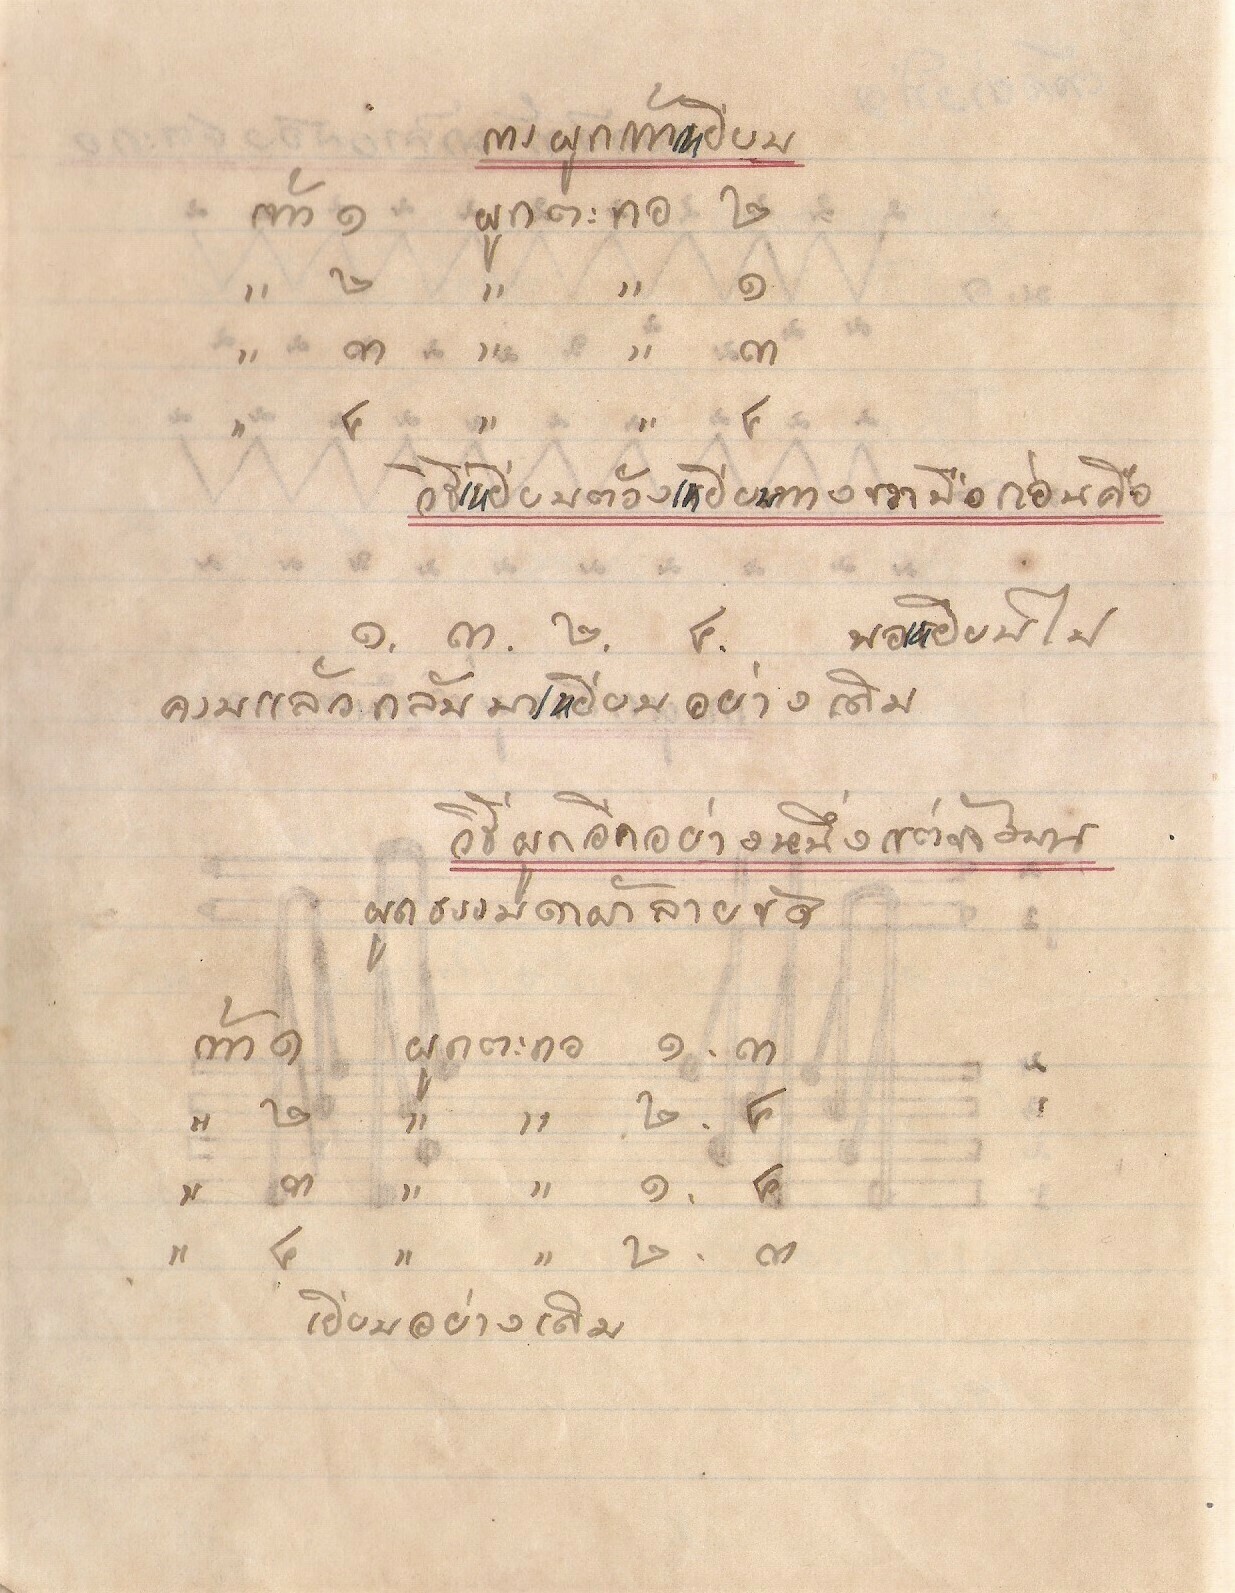 การผูกเท้าเหยียบ
เท้า ๑ ผูกตะกอ ๒
" ๒ " " ๑
" ๓ " " ๓
" ๔ " " ๔
วิธีเหยียบต้องเหยียบทางขวามือก่อนคือ
๑. ๓. ๒. ๔. พอเหยียบไป
ครบแล้วกลับมาเหยียบอย่างเดิม
วิธีผูกอีกอย่างหนึ่ง
ผูกธรรมดาผ้าลายขัด
เท้า ๑ ผูกตะกอ ๑. ๓
" ๒ " " ๒. ๔
" ๓ " " ๑. ๔
" ๔ " " ๒. ๓
เยียบอย่างเดิม